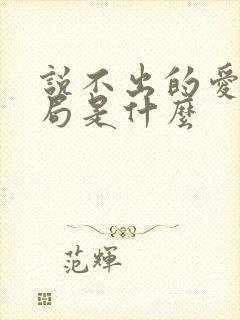 說不出的愛
局是什麼
范輝